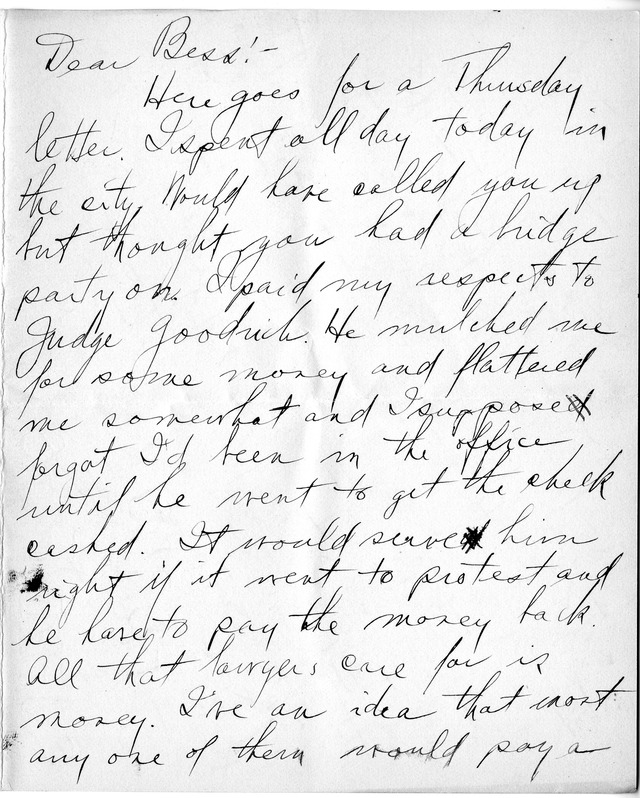 Dear Bess:-
Here goes for a Thursday
letter. I spent all day today in
the city. Would have called you up
but thought you had a bridge
party on. I paid my respects to
Judge Goodrich. He mulched me
for some money and flattered
me somewhat and I suppose
forgot I'd been in the office
until he went to get the check
cashed. It would serve him
right if it went to protest and
he have to pay the money back.
All that lawyers care for is
money. I've an idea that most
any one of them would pay a